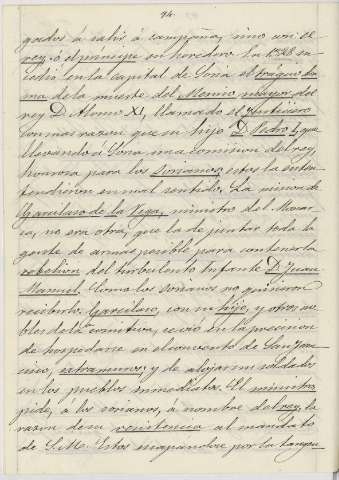 94.
gados á salir á campaña, sino van el
rey ó el príncipe su heredero. En 1328 su-
cedió en la capital de Soria el trágico dra-
ma de la muerte del Merino mayor del
rey D. Alonso XI, llamado el Justiciero
con mas razon que su hijo D. Pedro I, que
llevando á Soria una comision del rey,
honrosa para los sorianos, estos la enten-
dieron en mal sentido. La mision de
Garcilaso de la Vega, ministro del Monar-
ca, no era otra, que la de juntar toda la
gente de armas posible para contener la
rebelion del turbulento Infante D. Juan
Manuel. Como los sorianos no quisieron
recibirle. Garcilaso, con su hijo, y otros no-
bles de la comitiva, se vió en la precision
de hospedarse en el convento de San Fran-
cisco, extramuros, y de alojar sus soldados
en los pueblos inmediatos. El ministro
pide, á los sorianos, á nombre del rey, la
razon de su resistencia al mandato
de S.M. Estos escapándose por la